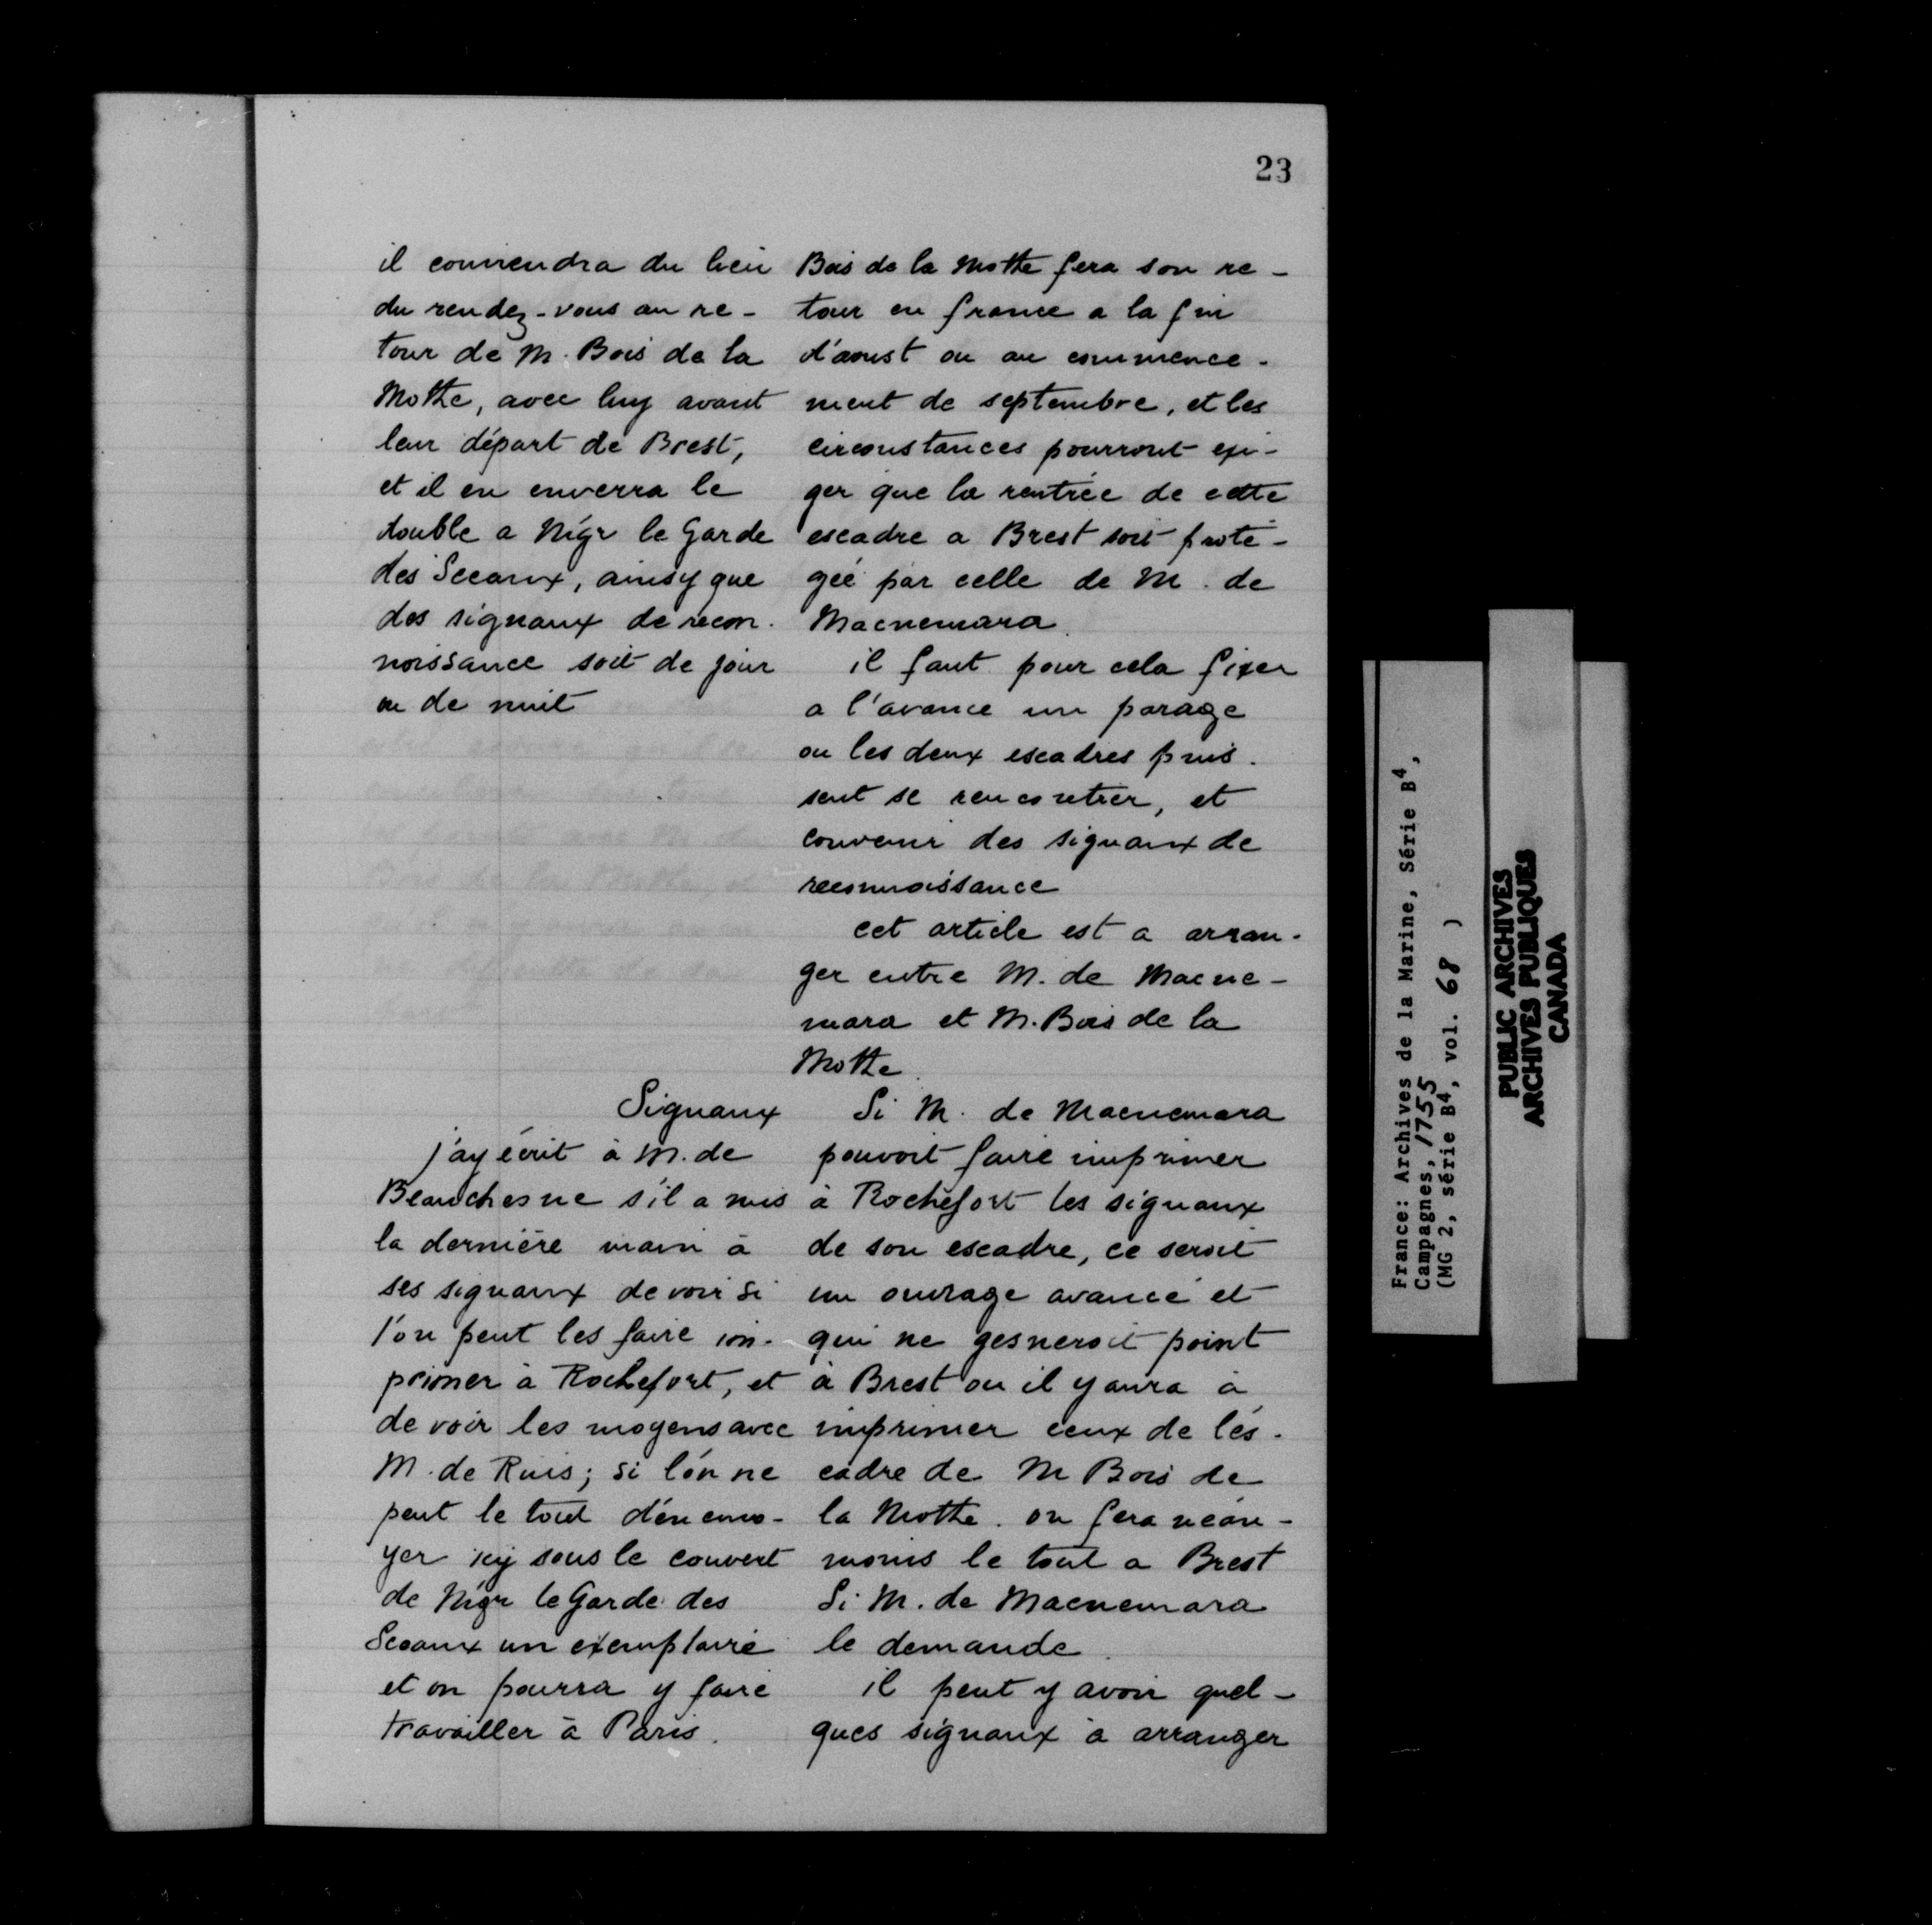 23
il conviendra du lieu
du rendez-vous au re-
tour de M. Bois de la
Motte, avec luy avant
leur départ de Brest,
et il en enverra le
double a Mgr le Garde
des Sceaux, ainsy que
des signaux de recon-
noissance soit de jour
ou de nuit
Signaux
j'ay écrit à M. de
Beauchesne s'il a mis
la dernière main à
ses signaux de voir si
l'on peut les faire im-
primer à Rochefort, et
de voir les moyens avec
M. de Ruis; si l'on ne
peut le tout d'en envo-
yer icy sous le couvert
de Mgr le Garde des
Sceaux un exemplaire
et on pourra y faire
travailler à Paris.
Bois de la Motte fera son re-
tour en france a la fin
d'aoust ou au commence-
ment de septembre, et les
circonstances pourront exi-
ger que la rentrée de cette
escadre a Brest soit proté-
gée par celle de M. de
Macnemara.
il faut pour cela fixer
a l'avance un parage
ou les deux escadres puis-
sent se rencontrer, et
convenir des signaux de
reconnoissance
cet article est a arran-
ger entre M. de Macne-
mara et M. Bois de la
Motte.
Si M. de Macnemara
pouvoit faire imprimer
à Rochefort les signaux
de son escadre, ce seroit
un ouvrage avancé et
qui ne gesneroit point
à Brest ou il y aura à
imprimer ceux de l'és-
cadre de M Bois de
la Motte. on fera néan-
moins le tout a Brest
Si M. de Macnemara
le demande.
il peut y avoir quel-
ques signaux à arranger
France: Archives de la Marine, Série B4,
Campagnes, 1755
(MG 2, série B4, vol. 68 )
PUBLIC ARCHIVES
ARCHIVES PUBLIQUES
CANADA